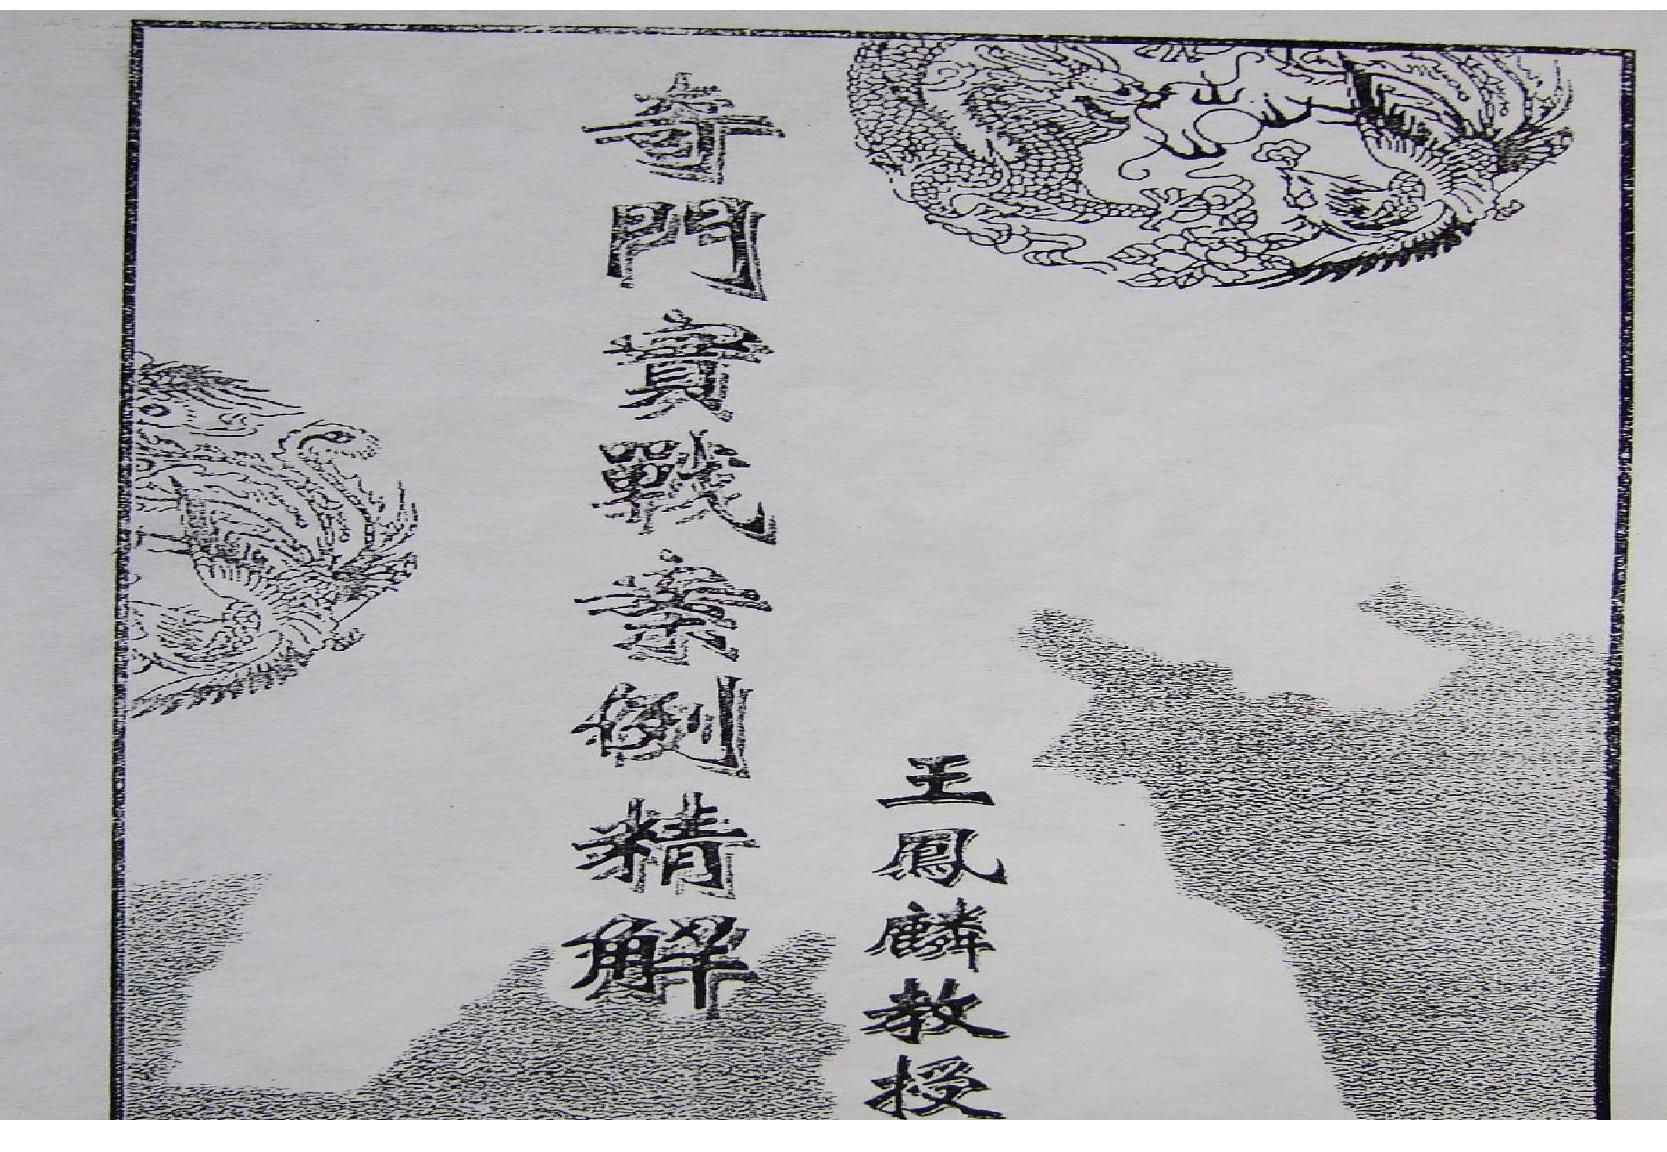 王鳳麟教授
奇門實戰案例精解